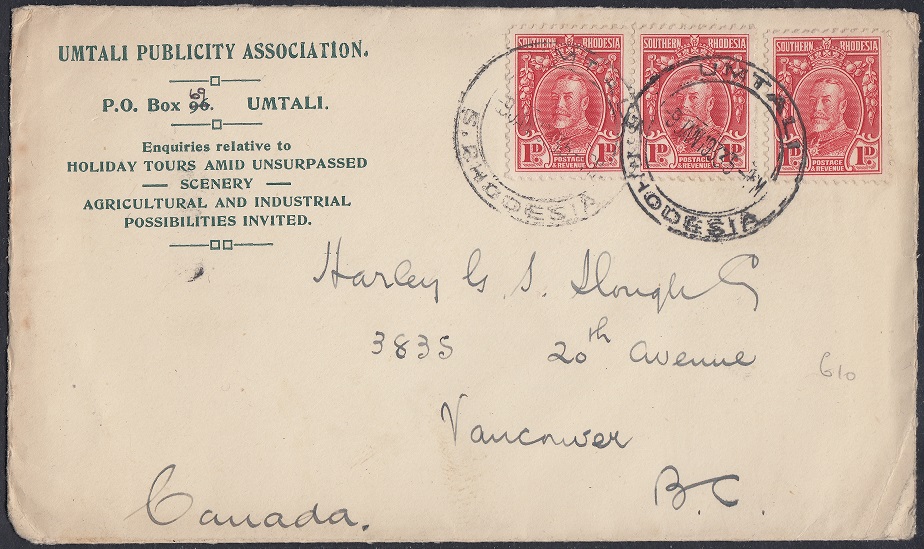 UMTALI PUBLICITY ASSOCIATION.
P.O. Box 96. UMTALI.
69
Enquiries relative to
HOLIDAY TOURS AMID UNSURPASSED
— SCENERY —
AGRICULTURAL AND INDUSTRIAL
POSSIBILITIES INVITED.
SOUTHERN RHODESIA
1D. POSTAGE & REVENUE 1D.
SOUTHERN RHODESIA
1D. POSTAGE & REVENUE 1D.
SOUTHERN RHODESIA
1D. POSTAGE & REVENUE 1D.
UMTALI
S. RHODESIA
UMTALI
S. RHODESIA
Harley G. S.
3835 20th Avenue
Vancouver
B.C.
Canada.
610